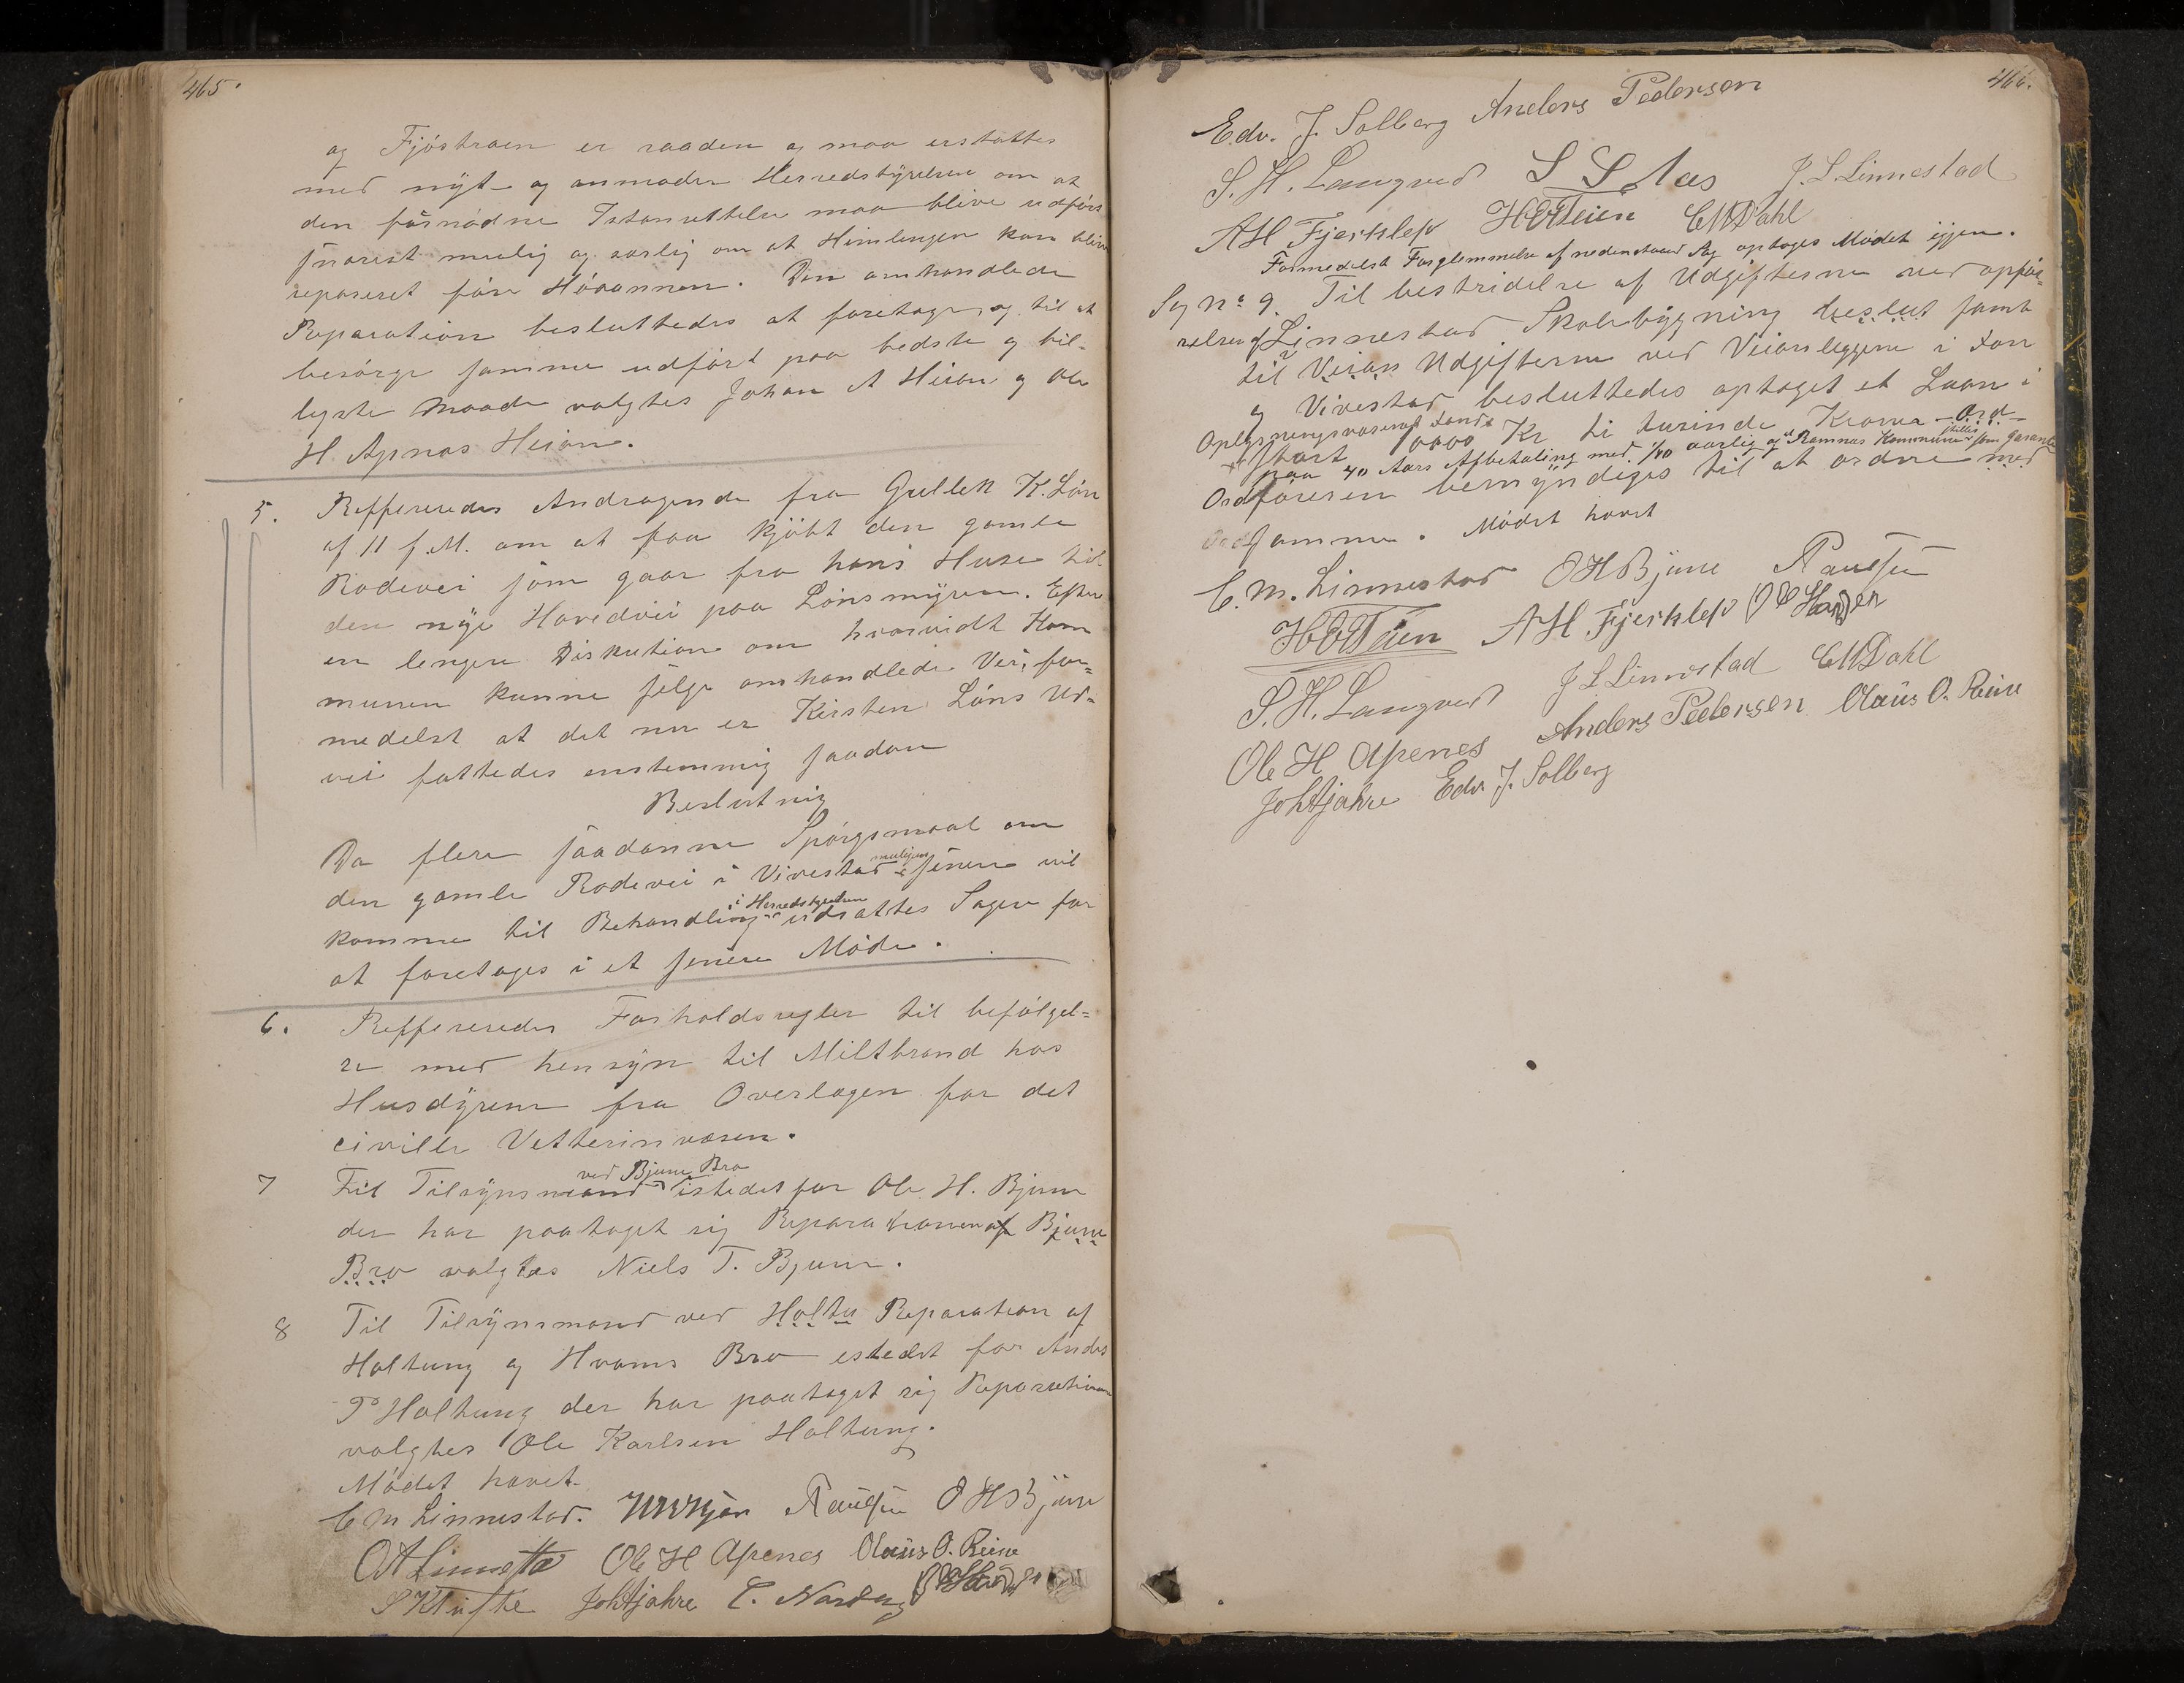 465.
og Fjöstraen er raaden og maa erstattes
med nÿt og anmoder Herredstÿrelsen om at
den fornödne Istansettelse maa blive udfört
snarest mulig og særlig om at Himlingen kan blive
repareret före Höaannen. Den omhandlede
Reparation besluttedes at foretage, og til at
besörge samme udfört paa bedste og bil-
ligste Maade valgtes Johan A Heian og Ole
H. Apnæs Heian.
5. Reffereredes Andragende fra Gullek K. Lön
af 11 f. M. om at faa kjöbt den gamle
Rodevei som gaar fra hans Huse til
den nÿe Hovedvei paa Lönsmÿren. Efter
en lengere Diskution om hvorvidt Kom
munen kunne sælge omhandlede Vei, for-
medelst at det nu er Kirsten Löns Ud-
vei fattedes enstemmig saadan
Beslutnig
Da flere saadanne Spörgsmaal om
den gamle Rodevei i Vivestad muligens senere vil
komme til Behandling i Herredstÿrelsen udsattes Sagen for
at foretages i et senere Möde.
6. Reffereredes Forholdsregler til befölgel-
se med hensÿn til Miltbrand hos
Husdÿrene fra Overlægen for det
civille Vetterinvæsen.
7 Til Tilsÿnsmand ved Bjune Bro istedet for Ole H. Bjune
der har paataget sig Reparationen af Bjune
Bro valgtes Niels T. Bjune.
8 Til Tilsÿnsmand ved Holtu Reparation af
Holtung og Hvams Bro istedet for Anders
P Holtung der har paataget sig Reparationen
valgtes Ole Karlsen Holtung.
Mödet hævet
C M Linnestad. Paulsen O H Bjune
Ole H Apenes Olaus O. Reine
S Klufte Joh Hjahre C.
466.
Edv. J. Solberg Anders Pedersen
S. H. Langved S S Aas J. L. Linnestad
A H Fjerklep H O Teien C M Dahl
Formedelst Forglemmelse af nedenstaaend Sag optoges Mödet igjen.
Sag No 9. Til bestridelse af Udgifterne ved opför-
relsen af Linnestad Skolebÿgning besluttet samt
til Veian Udgifterne ved Veianleggene i Fon
og Vivestad besluttedes optaget et Laan i
Oplysningsvæsenets Fonds
stort 10000 Kr ti tusinde Kroner Ord
paa 40 Aars Afbetaling med 1/40 aarlig og stilles Ramnæs Kommune som Garanti
Ordföreren bemÿndiges til at ordne med
samme. Mödet hævet
C. M. Linnestad O H Bjune Paulsen
H O Teien A H Fjerklep
S. H. Langved J L Linnestad C M Dahl
Ole H Apenes Anders Pedersen Olaus O. Reine
Joh Hjahre Edv. J. Solberg